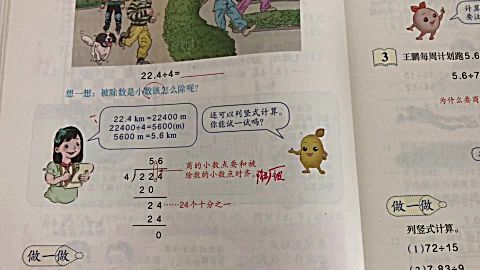 22.4÷4=
想一想：被除数是小数该怎么除呢？
22.4 km=22400 m
22400÷4=5600(m)
5600 m=5.6 km
还可以列竖式计算。
你能试一试吗？
5.6
4 22.4
20
24……24个十分之一
24
0
商的小数点要和被
除数的小数点对齐。
做一做
计算
要注
3 王鹏每周计划跑5.6
5.6÷7
为什么要商
做一做
列竖式计算。
(1)72÷15
(3)7.83÷9